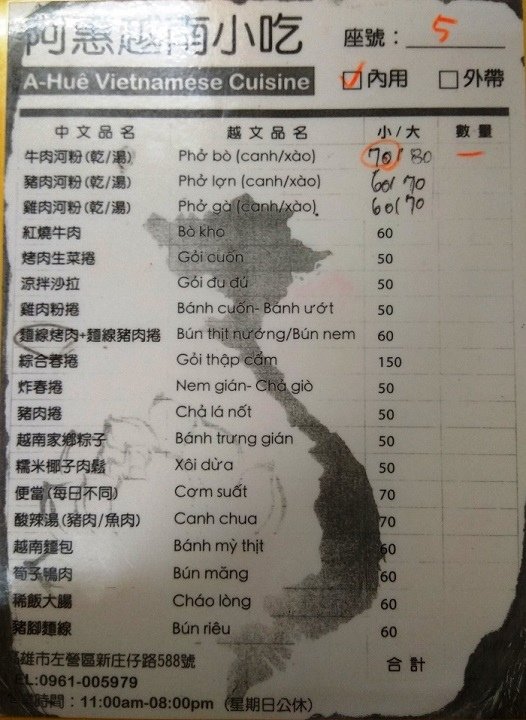 阿惠越南小吃 座號：5
A-Huê Vietnamese Cuisine ✓內用 □外帶
中文品名 越文品名 小/大 數量
牛肉河粉(乾/湯) Phở bò (canh/xào) 70/80 一
豬肉河粉(乾/湯) Phở lợn (canh/xào) 60/70
雞肉河粉(乾/湯) Phở gà (canh/xào) 60/70
紅燒牛肉 Bò kho 60
烤肉生菜捲 Gỏi cuốn 50
涼拌沙拉 Gỏi đu đủ 50
雞肉粉捲 Bánh cuốn- Bánh ướt 50
麵線烤肉+麵線豬肉捲 Bún thịt nướng/Bún nem 60
綜合春捲 Gỏi thập cẩm 150
炸春捲 Nem gián- Chả giò 50
豬肉捲 Chả lá nốt 50
越南家鄉粽子 Bánh trưng gián 50
糯米椰子肉鬆 Xôi dừa 50
便當(每日不同) Cơm suất 70
酸辣湯(豬肉/魚肉) Canh chua 70
越南麵包 Bánh mỳ thịt 60
筍子鴨肉 Bún măng 60
稀飯大腸 Cháo lòng 60
豬腳麵線 Bún riêu 60
高雄市左營區新庄仔路588號 合計
TEL:0961-005979
時間：11:00am-08:00pm (星期日公休)